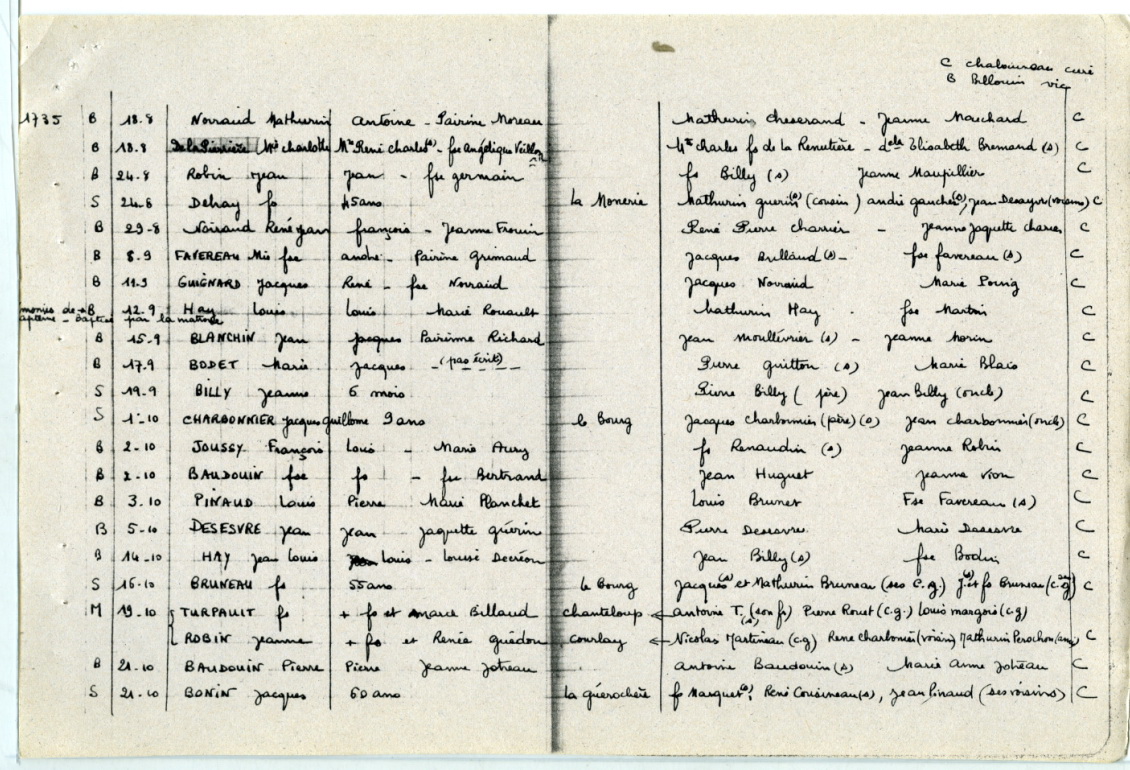 C chabouneau curé
B Billouin vic
1735 B 18.8 Norraud Mathurin Antoine - Pairine Moreau Mathurin Cheserand - Jeanne Marchard C
B 18.8 De la (Mie charlotte Mre René Charles (s) - fse Angélique Veillon Mre Charles fs de la Renutière - delle Elisabeth Bremand (s) C
B 24.8 Robin Jean Jean - fse germain fs Billy (s) Jeanne Maupillier C
S 24.8 Delhay fs 45 ans la Monerie Mathurin guerin (s) (cousin) andré (s), Jean (voisins) C
B 29-8 Noiraud René Jean françois - Jeanne Frouin René Pierre charrier - Jeanne Jaquette charrier C
B 8.9 FAVEREAU Mie fse andré - Pairine Grimaud Jacques Brillaud (s) - fse favereau (s) C
B 11.9 GUIGNARD Jacques René - fse Norraud Jacques Norraud Marie C
B 12.9 Hay Louis Louis Marie Rouault Mathurin Hay . fse Martin C
par la matrone
B 15.9 BLANCHIN Jean Jacques Pairinne Richard Jean (s) - Jeanne Morin C
B 17.9 BODET Marie Jacques - (pas écrit) Pierre guitton (s) Marie Blais C
S 19.9 BILLY Jeanne 6 mois Pierre Billy (père) Jean Billy (oncle) C
S 1-10 CHARBONNIER Jacques guillaume 9 ans le Bourg Jacques charbonnier (père) (s) Jean charbonnier (oncle) C
B 2-10 JOUSSY François Louis - Marie Aury fs Renaudin (s) Jeanne Robin C
B 2-10 BAUDOUIN fse fs - fse Bertrand Jean Huguet Jeanne Vion C
B 3.10 PINAUD Louis Pierre Marie Planchet Louis Brunet Fse Favereau (s) C
B 5-10 DESESVRE Jean Jean Jaquette guérin Pierre Desesvre Marie Desesvre C
B 14-10 HAY Jean Louis Louis - Louise Decréon Jean Billy (s) fse Bodin C
S 16-10 BRUNEAU fs 55 ans le Bourg Jacques (s) et Mathurin Bruneau (ses C.g.) J (s) et fs Bruneau (c. g) C
M 19-10 TURPAULT fs + fs et Marie Billaud chanteloup ← antoine T. (s) (son fs) Pierre Rouet (c.g.) Louis margois (c.g)
ROBIN Jeanne + fs et Renée guédon courlay ← Nicolas Martineau (c.g) René charbonnier (voisin) Mathurin Perochon (ami) C
B 21-10 BAUDOUIN Pierre Pierre Jeanne Jotreau antoine Baudouin (s) Marie Anne Jotreau C
S 21-10 BONIN Jacques 60 ans la guérochère fs Marquet (s), René Cousineau (s), Jean Pinaud (ses voisins) C